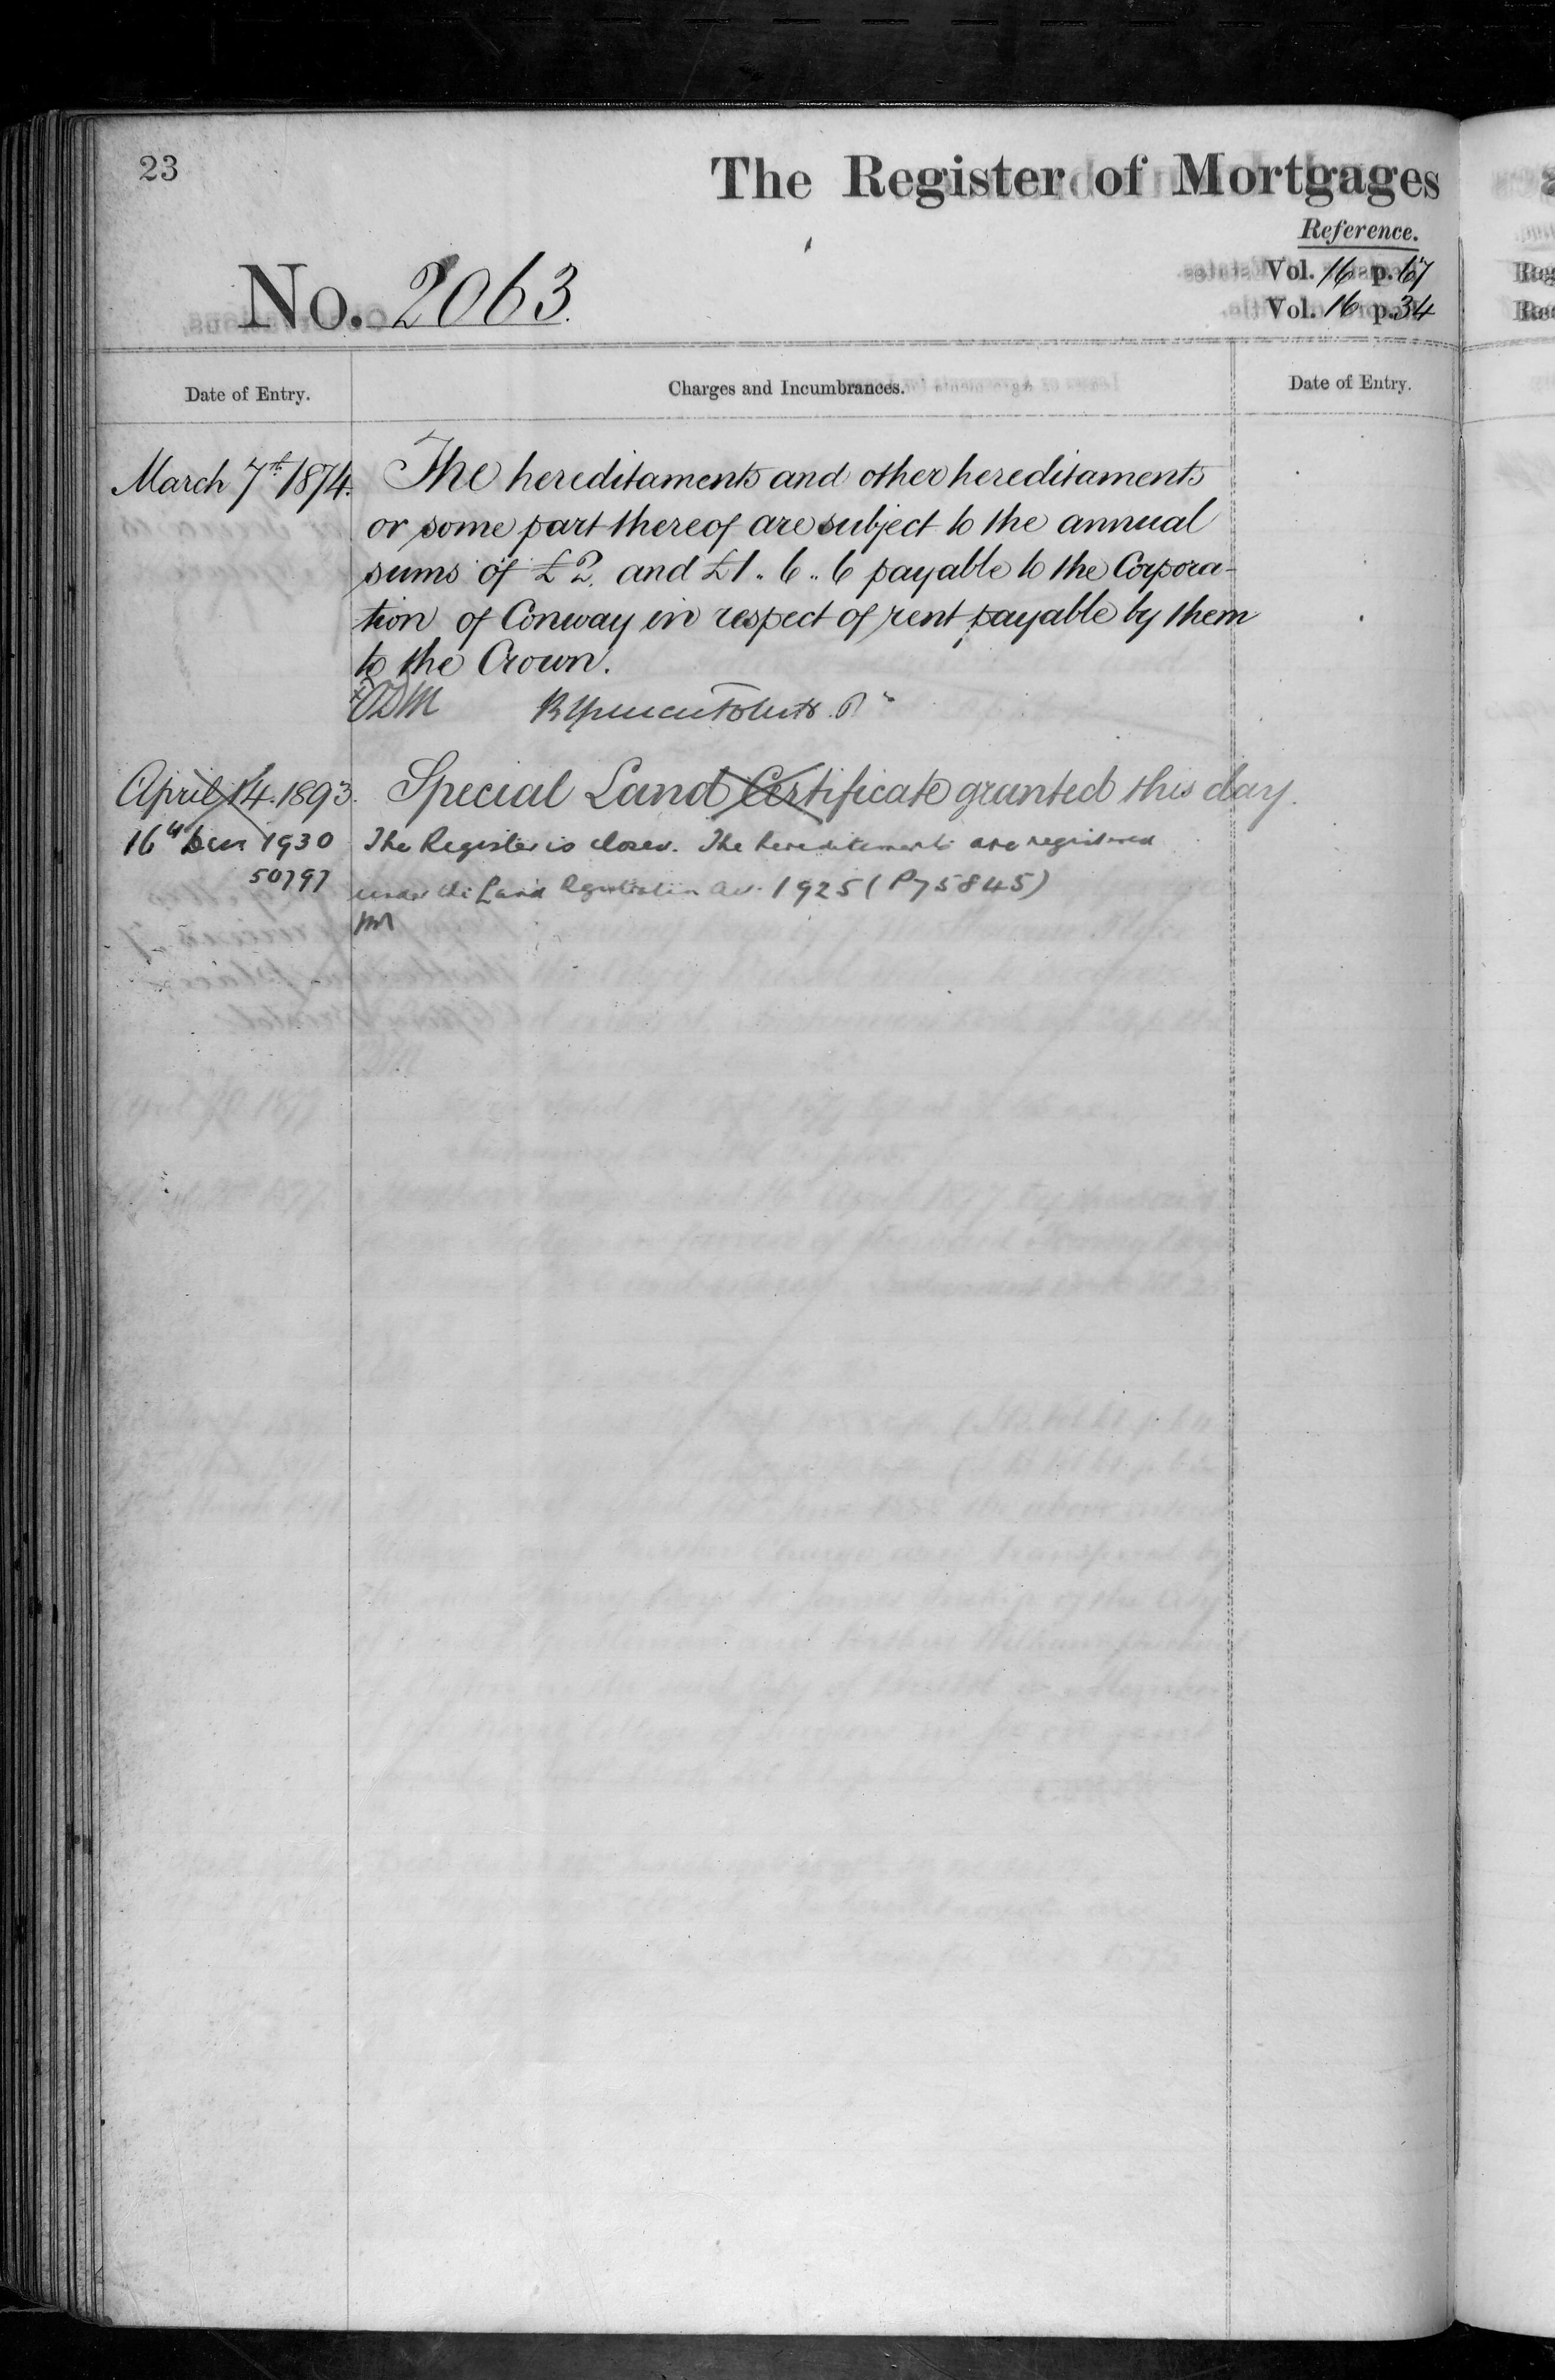 23
The Register of Mortgages
Reference.
Vol. 16 p. 67
Vol. 16 p. 34
No. 2063.
Date of Entry.
Charges and Incumbrances.
Date of Entry.
March 7th 1874.
The hereditaments and other hereditaments
or some part thereof are subject to the annual
sums of £2. and £1. 6. 6 payable to the Corpora-
tion of Conway in respect of rent payable by them
to the Crown.
April 14. 1893.
Special Land Certificate granted this day.
16th Decr 1930
The Register is closed. The hereditaments are registered
50797
under the Land Registration Act. 1925 (P75845)